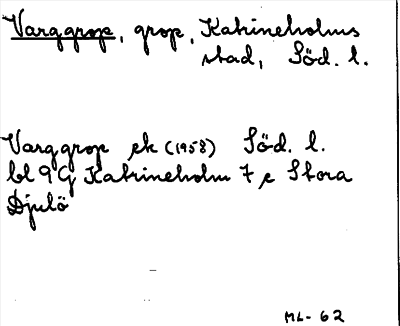 Varggrop, grop, Katrineholms
stad, Söd. l.
Varggrop ek (1958) Söd. l.
bl 9G Katrineholm 7 e Stora
Djulö
ML- 62